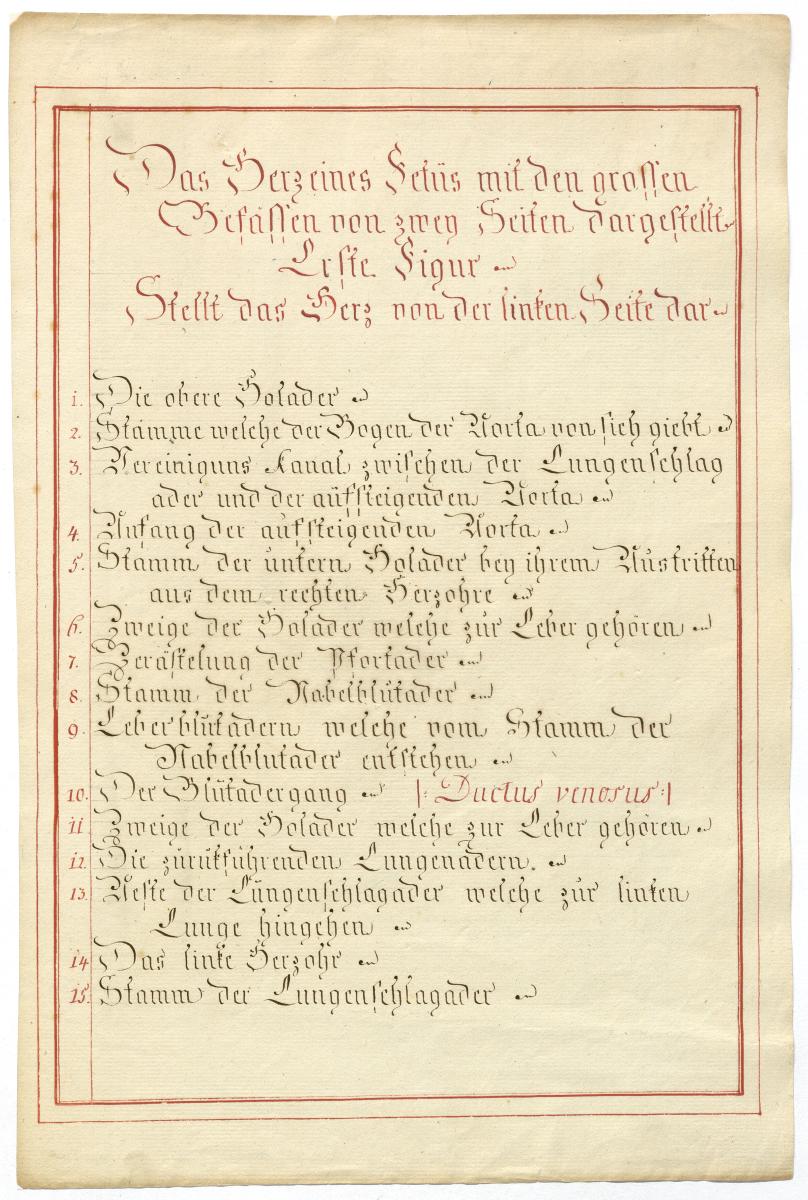 Das Herz eines Fetüs mit den grossen
Gefässen von zwey Seiten dargestellt
Erste Figur
Stellt das Herz von der linken Seite dar
1. Die obere Holader
2. Stämme welche der Bogen der Aorta von sich giebt
3. Vereiniguns Kanal zwischen der Lungenschlag
ader und der aüfsteigenden Aorta
4. Anfang der aufsteigenden Aorta
5. Stamm der üntern Holader bey ihrem Austritten
aus dem rechten Herzohre
6. Zweige der Holader welche zür Leber gehören
7. Zerästelung der Pfortader
8. Stamm der Nabelblütader
9. Leberblütadern welche vom Stamm der
Nabelblutader entstehen
10. Der Blütadergang |: Ductus venosus :|
11. Zweige der Holader welche zur Leber gehören
12. Die zürükführenden Lungenadern.
13. Aeste der Lüngenschlagader welche zür linken
Lunge hingehen
14 Das linke Herzohr
15. Stamm der Lungenschlagader